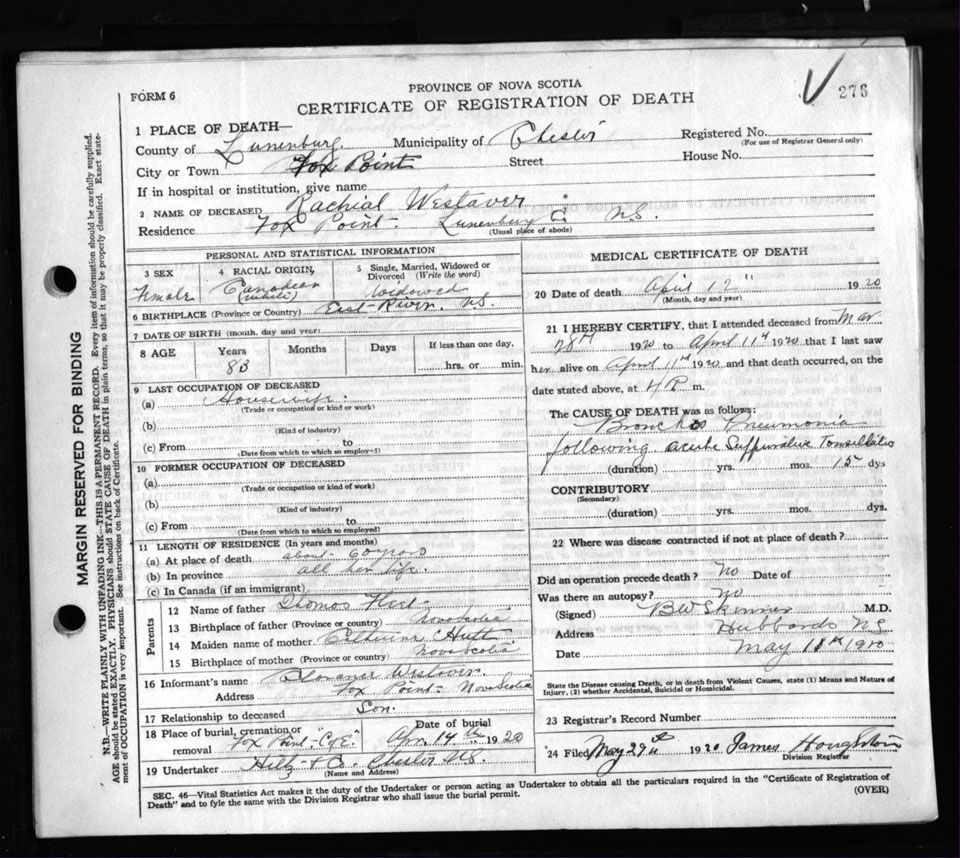 276
FORM 6
PROVINCE OF NOVA SCOTIA
CERTIFICATE OF REGISTRATION OF DEATH
1 PLACE OF DEATH—
County of Lunenburg. Municipality of Chester Registered No.
(For use of Registrar General only)
City or Town Fox Point Street House No.
If in hospital or institution, give name
2 NAME OF DECEASED Rachial Westaver
Residence Fox Point. Lunenburg Co N.S.
(Usual place of abode)
PERSONAL AND STATISTICAL INFORMATION
3 SEX
Female
4 RACIAL ORIGIN
Canadean
(white)
5 Single, Married, Widowed or
Divorced (Write the word)
Widowed
6 BIRTHPLACE (Province or Country) East River. N.S.
7 DATE OF BIRTH (month, day and year)
8 AGE Years Months Days If less than one day,
83 hrs. or min.
9 LAST OCCUPATION OF DECEASED
(a) Housewife.
(Trade or occupation or kind or work)
(b)
(Kind of industry)
(c) From to
(Date from which to which so employed)
10 FORMER OCCUPATION OF DECEASED
(a)
(Trade or occupation or kind of work)
(b)
(Kind of industry)
(c) From to
(Date from which to which so employed)
11 LENGTH OF RESIDENCE (In years and months)
(a) At place of death about 60 years
(b) In province all her life.
(c) In Canada (if an immigrant)
Parents
12 Name of father
13 Birthplace of father (Province or country) Nova Scotia
14 Maiden name of mother Catherine Hutt
15 Birthplace of mother (Province or country) Nova Scotia
16 Informant's name Westaver.
Address Fox Point- Nova Scotia
17 Relationship to deceased Son.
18 Place of burial, cremation or removal Fox Point "C of E." Date of burial Apr. 14th 1920
19 Undertaker Hiltz & Co. Chester N.S.
(Name and Address)
MEDICAL CERTIFICATE OF DEATH
20 Date of death April 12" 1920
(Month, day and year)
21 I HEREBY CERTIFY, that I attended deceased from Mar
28th 1920 to April 11th 1920 that I last saw
her alive on April 11th 1920 and that death occurred, on the
date stated above, at 4 P. m.
The CAUSE OF DEATH was as follows:
Broncho Pneumonia
following acute Suppurative Tonsillitis
(duration) yrs. mos. 15 dys
CONTRIBUTORY
(Secondary)
(duration) yrs. mos. dys
22 Where was disease contracted if not at place of death?
Did an operation precede death? No Date of
Was there an autopsy? No
(Signed) B W Skinner M.D.
Address Hubbards N S
Date May 18th 1920
State the Disease causing Death, or in death from Violent Causes, state (1) Means and Nature of
Injury, (2) whether Accidental, Suicidal or Homicidal.
23 Registrar's Record Number
24 Filed May 29th 1920 James
Division Registrar
SEC. 46—Vital Statistics Act makes it the duty of the Undertaker or person acting as Undertaker to obtain all the particulars required in the "Certificate of Registration of
Death" and to fyle the same with the Division Registrar who shall issue the burial permit.
(OVER)
MARGIN RESERVED FOR BINDING
N.B.—WRITE PLAINLY WITH UNFADING INK—THIS IS A PERMANENT RECORD. Every item of information should be carefully supplied.
AGE should be stated EXACTLY. PHYSICIANS should STATE CAUSE OF DEATH in plain terms, so that it may be properly classified. Exact state-
ment of OCCUPATION is very important. See instructions on back of Certificate.